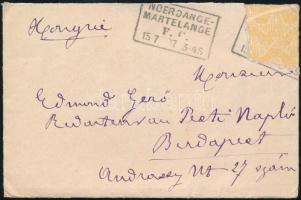 NOERDANGE-
MARTELANGE
F. C.
15 7 7 3-45
Hongrie
Monsieur
Edmond Gerő
Redacteur au Pesti Napló
Budapest
Andrassy Ut 27 szám